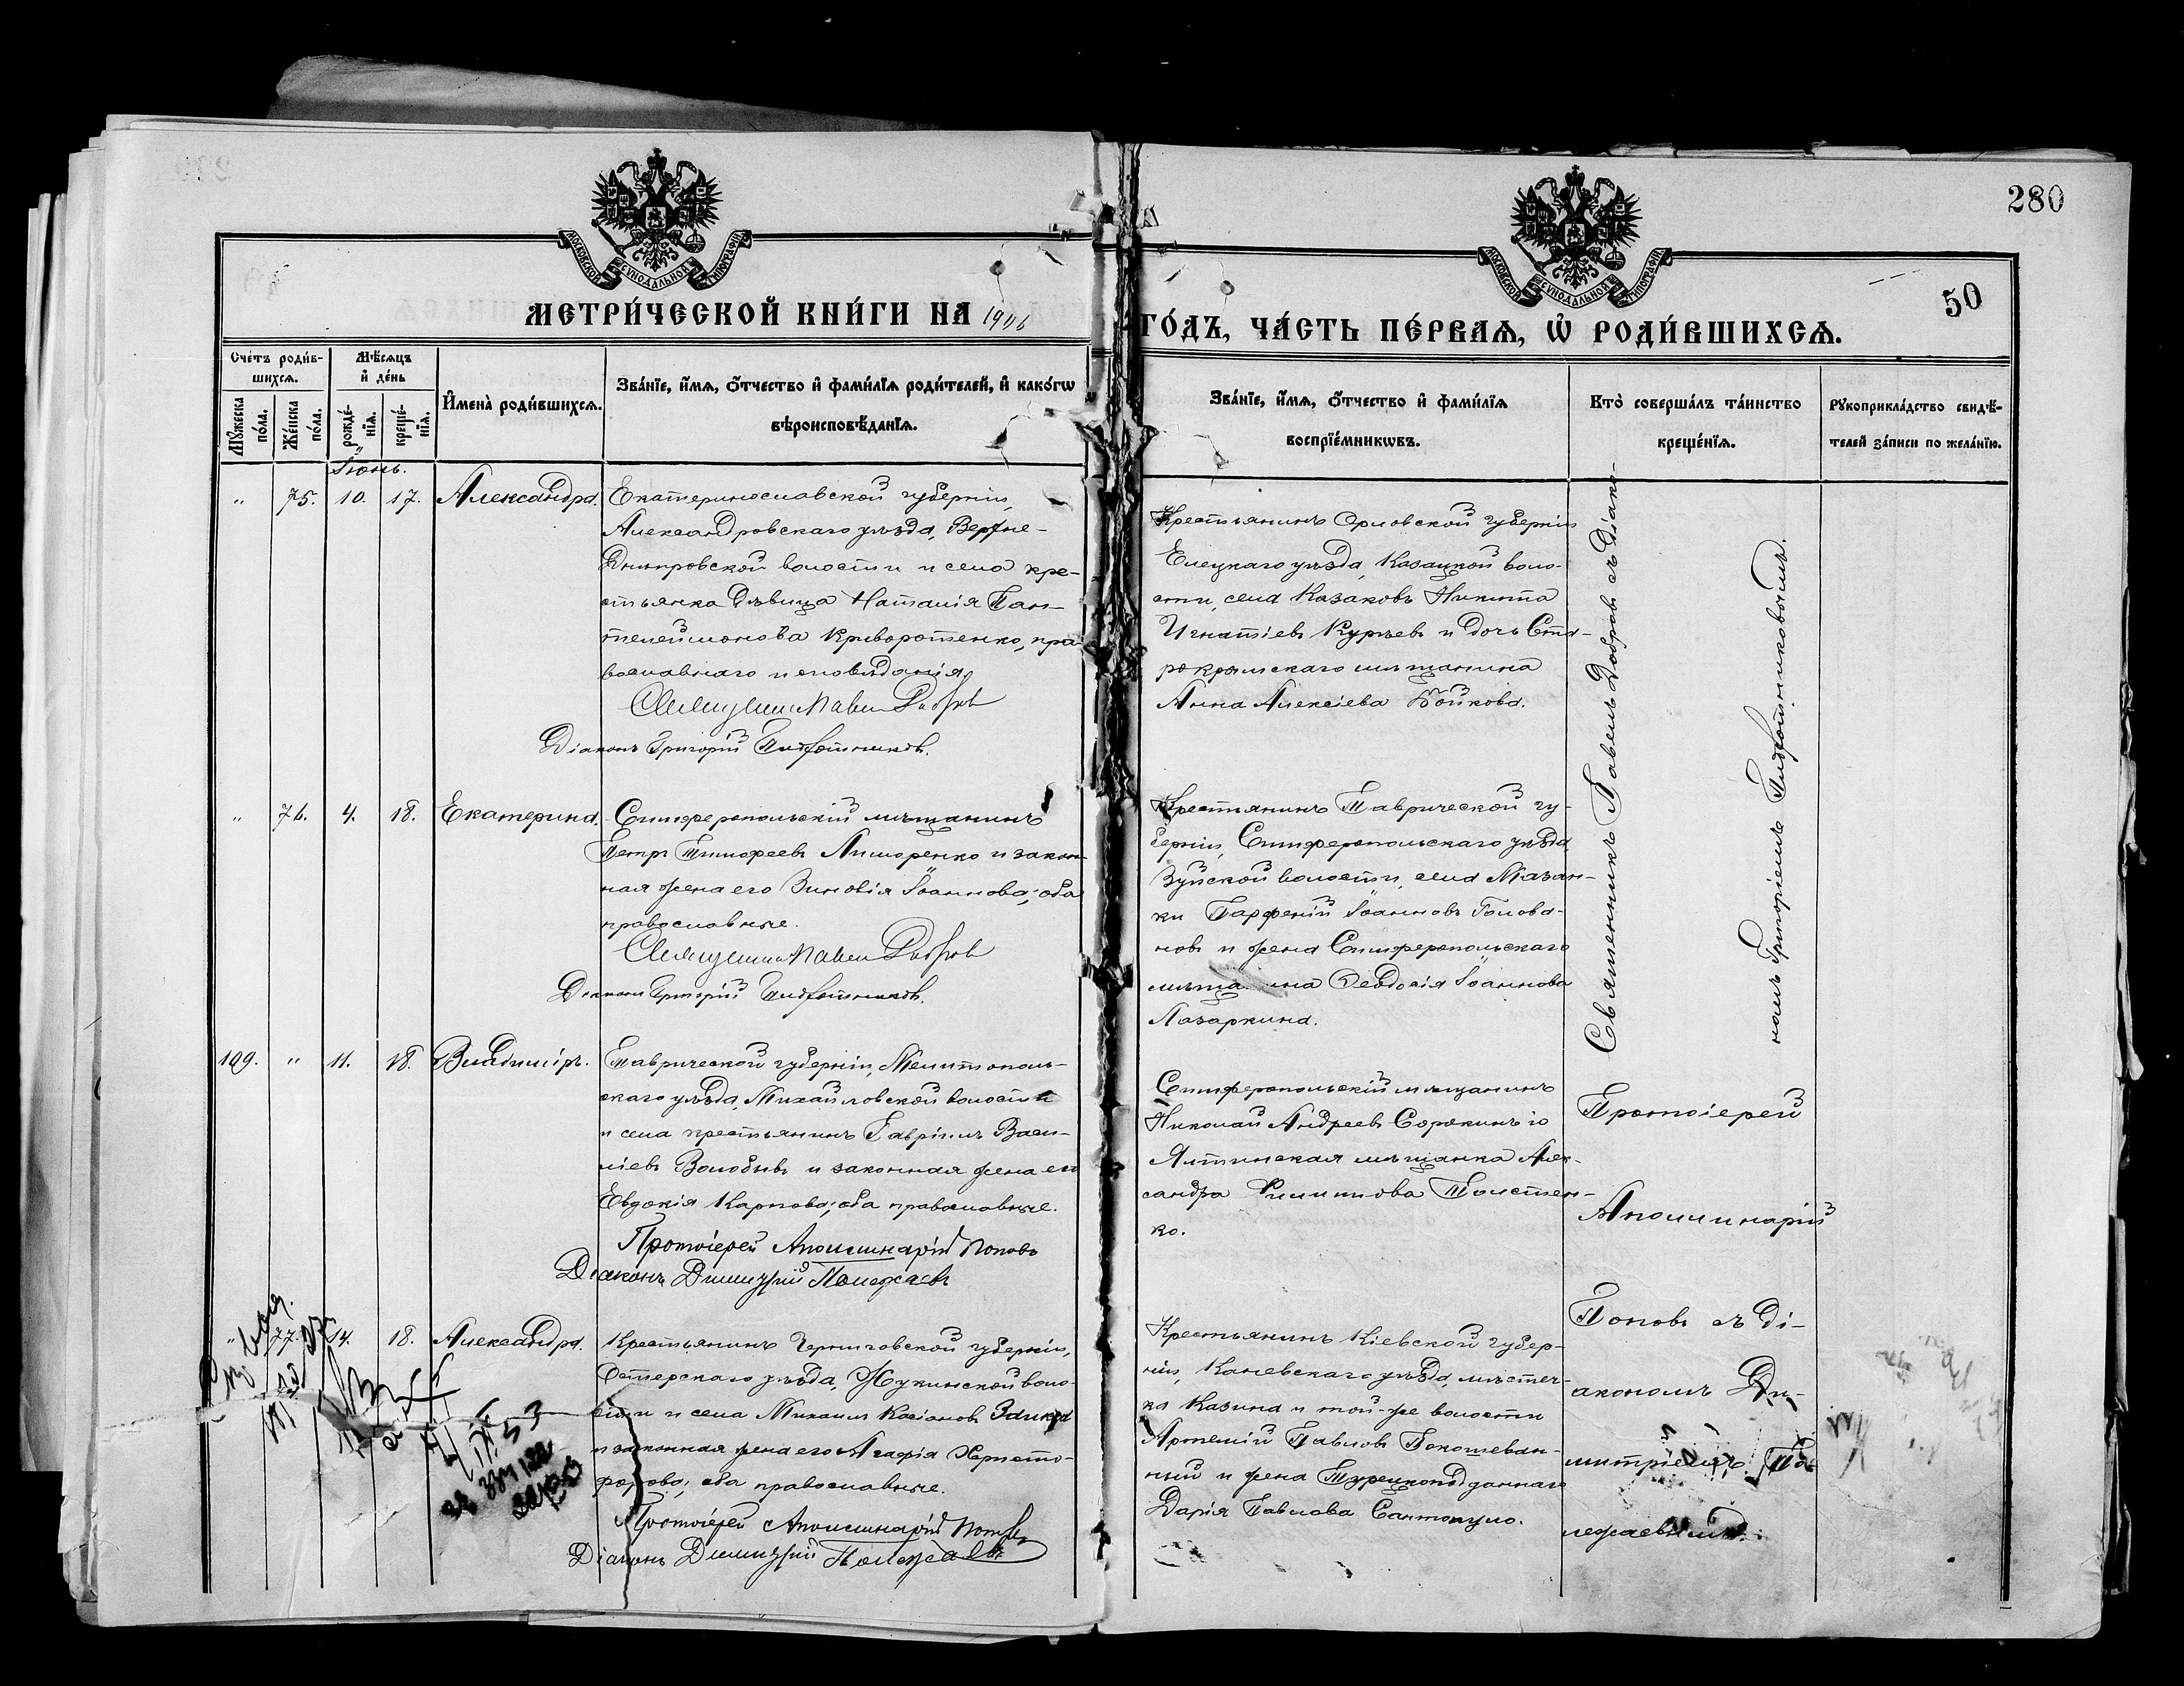 280
50
МОСКОВСКОЙ СѴНОДАЛЬНОЙ ТИПОГРАФІИ
МОСКОВСКОЙ СѴНОДАЛЬНОЙ ТИПОГРАФІИ
МЕТРИ́ЧЕСКОЙ КНИ́ГИ НА 1906
ГО́ДЪ, ЧА́СТЬ ПЕ́РВАѦ, Ѡ҆ РОДИ́ВШИХСѦ.
Сче́тъ роди́в-
шихсѧ.
Мѣ́сѧцъ
и҆ де́нь
Мꙋ́жеска по́ла.
Же́нска по́ла.
рожде́-
нїѧ.
креще́-
нїѧ.
И҆мена̀ роди́вшихсѧ.
Зва́нїе, и҆́мѧ, ѻ҆́тчество и҆ фами́лїѧ роди́телей, и҆ како́гѡ
вѣроисповѣ́данїѧ.
Зва́нїе, и҆́мѧ, ѻ҆́тчество и҆ фами́лїѧ
воспрїе́мникѡвъ.
Кто̀ соверша́лъ та́инство
креще́нїѧ.
Рꙋкоприкла́дство свидѣ́-
телей за́писи по жела́нїю.
Іюнь.
" 75. 10. 17. Александра.
Екатеринославской губерніи,
Александровскаго уѣзда, Верхне-
Днѣпровской волости и села кре-
стьянка дѣвица Наталія Пан-
телеймонова Криворотенко, пра
вославнаго исповѣданія,
Священникъ Павелъ Добровъ
Діаконъ Григорій
Крестьянинъ Орловской губерніи
Елецкаго уѣзда, Казацкой воло-
сти, села Казаковъ Никита
Игнатіевъ Курѣевъ и дочь Ста-
рокрымскаго мѣщанина
Анна Алексіева Бойкова.
Священникъ Павелъ Добровъ съ Діако-
номъ Григоріемъ
" 76. 4. 18. Екатерина.
Симферопольскій мѣщанинъ
Петръ Тимофеевъ Лиморенко и закон-
ная жена его Зиновія Іоаннова; оба
православные.
Священникъ Павелъ Добровъ
Діаконъ Григорій
Крестьянинъ Таврической гу-
берніи, Симферопольскаго уѣзда
Зуйской волости, села Мазан-
ки Парфеній Іоанновъ Голова-
новъ и жена Симферопольскаго
Ѳеодосія Іоаннова
Лазаркина.
109. " 11. 18. Владиміръ.
Таврической губерніи, Мелитополь-
скаго уѣзда, Михайловской волости
и села крестьянинъ Гавріилъ Васи-
ліевъ Волобуевъ и законная жена его
Евдокія Карпова; оба православные.
Протоіерей Аполлинарій Поповъ
Діаконъ Димитрій Полежаевъ
Симферопольскій мѣщанинъ
Николай Андреевъ Сорокинъ и
Ялтинская мѣщанка Алек-
сандра Филиппова Толстен-
ко.
Протоіерей
Аполлинарій
Поповъ съ Ді-
акономъ Ди-
митріемъ По-
лежаевымъ.
" 77. 14. 18. Александра.
Крестьянинъ Черниговской губерніи,
Остерскаго уѣзда, Жукинской воло-
сти и села Михаилъ Касіановъ
и законная жена его Агафія Христо-
форова; оба православные.
Протоіерей Аполлинарій Поповъ
Діаконъ Димитрій Полежаевъ
Крестьянинъ Кіевской губер-
ніи, Каневскаго уѣзда, мѣстеч-
ка Казина и той-же волости
Артемій Павловъ
ный и жена Турецкоподданнаго
Дарія Павлова Сантопуло.